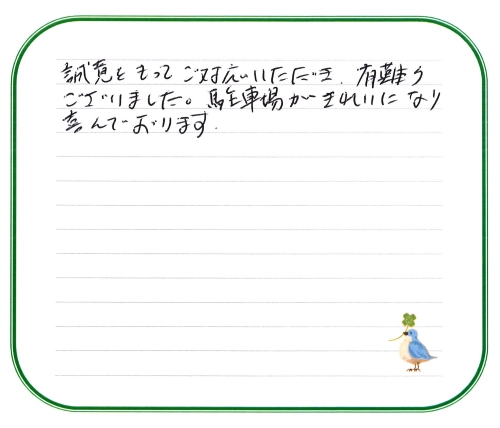 誠意をもってご対応いただき、有難う
ございました。駐車場がきれいになり
喜んでおります。